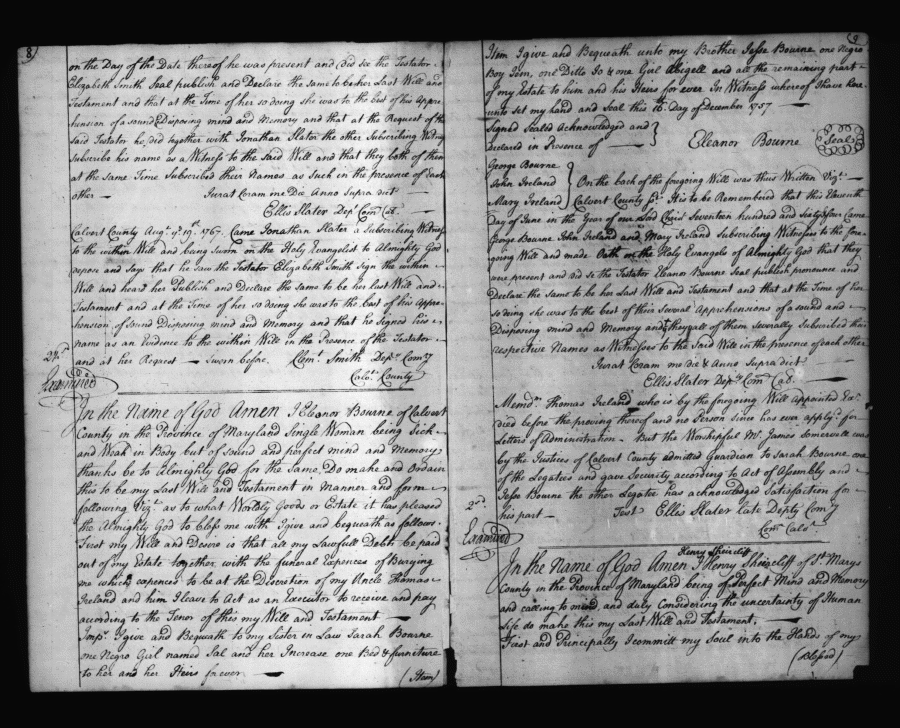 8
on the Day of the Date thereof he was present and did see the Testator
Elizabeth Smith Seal publish and Declare the Same to be her Last Will and
Testament and that at the Time of her so doing she was to the best of his Appre-
hension of a sound Disposing mind and Memory and that at the Request of the
said Testator he did together with Jonathan Slater the other Subscribing Witness
Subscribe his name as a Witness to the Said Will and that they both of them
at the same Time Subscribed their Names as such in the presence of Each
other — Jurat Coram me Die Anno Supra dict —
Ellis Slater Depy Comy Cal.
Calvert County Augt ye 19th 1767. Came Jonathan Slater a Subscribing Witness
to the within Will and being Sworn on the Holy Evangelist to Almighty God
depose and Say that he Saw the Testator Elizabeth Smith Sign the within
Will and heard her Publish and Declare the same to be her last Will and
Testament and at the Time of her so doing she was to the best of his Appre-
hension of Sound Disposing mind and Memory and that he signed his
name as an Evidence to the within Will in the Presence of the Testator
and at her Request — Sworn before. Clemt Smith Depy Comy
Calvt County
Examined
In the Name of God Amen I Eleanor Bourne of Calvert
County in the Province of Maryland Single Woman being Sick
and Weak in Body but of Sound and perfect mind and Memory
thanks be to Almighty God for the Same, Do make and Ordain
this to be my Last Will and Testament in Manner and form
following Vizt as to what Worldly Goods or Estate it has pleased
the Almighty God to bless me with I give and bequeath as follows.
First my Will and Desire is that all my Lawfull Debts be paid
out of my Estate together with the funeral Expences of Burying
me which expence to be at the Discretion of my Uncle Thomas
Ireland and him I leave to Act as an Executor to receive and pay
according to the Tenor of this my Will and Testament —
Imps. I give and Bequeath to my Sister in Law Sarah Bourne
one Negro Girl named Sal and her Increase one Bed & furniture
to her and her Heirs forever —
(Item)
9
Item I give and Bequeath unto my Brother Jesse Bourne one Negro
Boy Jem, one Ditto Jo & one Girl Abigell and all the remaining part
of my Estate to him and his Heirs for ever In Witness whereof I have here-
unto set my hand and Seal this 15 Day of December 1757
Signed Seald Acknowledged and
Declared in Presence of —
Eleanor Bourne Seal
George Bourne
John Ireland
Mary Ireland
On the back of the foregoing Will was thus Written Vizt. —
Calvert County Sc. It is to be Remembered that this Eleventh
Day of June in the Year of our Lord Christ Seventeen hundred and Sixty four Came
George Bourne John Ireland and Mary Ireland Subscribing Witnesses to the fore-
going Will and made Oath on the Holy Evangels of Almighty God that they
were present and did see the Testator Eleanor Bourne Seal publish pronounce and
Declare the same to be her Last Will and Testament and that at the Time of her
so doing she was to the best of their Several Apprehensions of a sound and
Disposing mind and Memory and they all of them Severally Subscribed their
respective Names as Witnesses to the Said Will in the presence of each other
Jurat Coram me die & Anno Supra dict
Ellis Slater Depy Comy Cal.
Memdm Thomas Ireland who is by the foregoing Will appointed Exr.
died before the proving thereof and no Person since has ever apply'd for
Letters of Administration. But the Worshipful Mr James Somervell was
by the Justices of Calvert County admitted Guardian to Sarah Bourne one
of the Legatees and gave Security according to Act of Assembly and
Jesse Bourne the other Legatee has acknowledged Satisfaction for
his part — Test Ellis Slater late Depty Comy
Comy Calvt
Examined
Henry Sheircliff
In the Name of God Amen I Henry Sheircliff of St. Marys
County in the Province of Maryland being of Perfect Mind and Memory
and calling to mind and duly Considering the uncertainty of Human
Life do make this my Last Will and Testament. —
First and Principally I committ my Soul into the Hands of my
(Blessed)